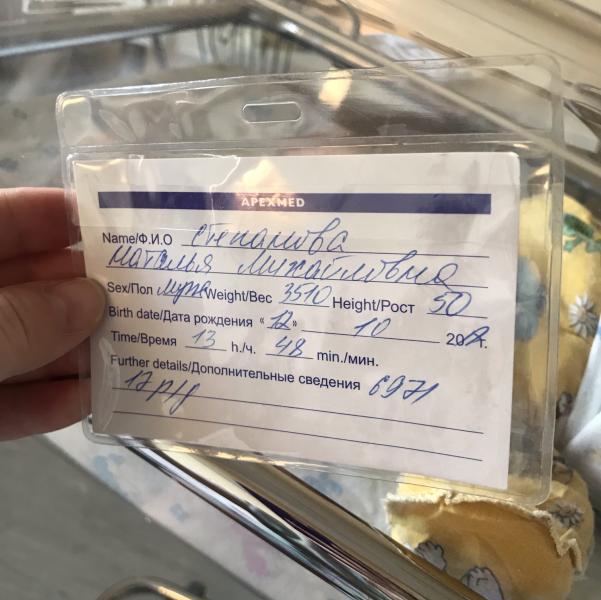 APEXMED
Name/Ф.И.О Степанова
Наталья Михайловна
Sex/Пол муж Weight/Вес 3510 Height/Рост 50
Birth date/Дата рождения «12» 10 20 г.
Time/Время 13 h./ч. 48 min./мин.
Further details/Дополнительные сведения 6971